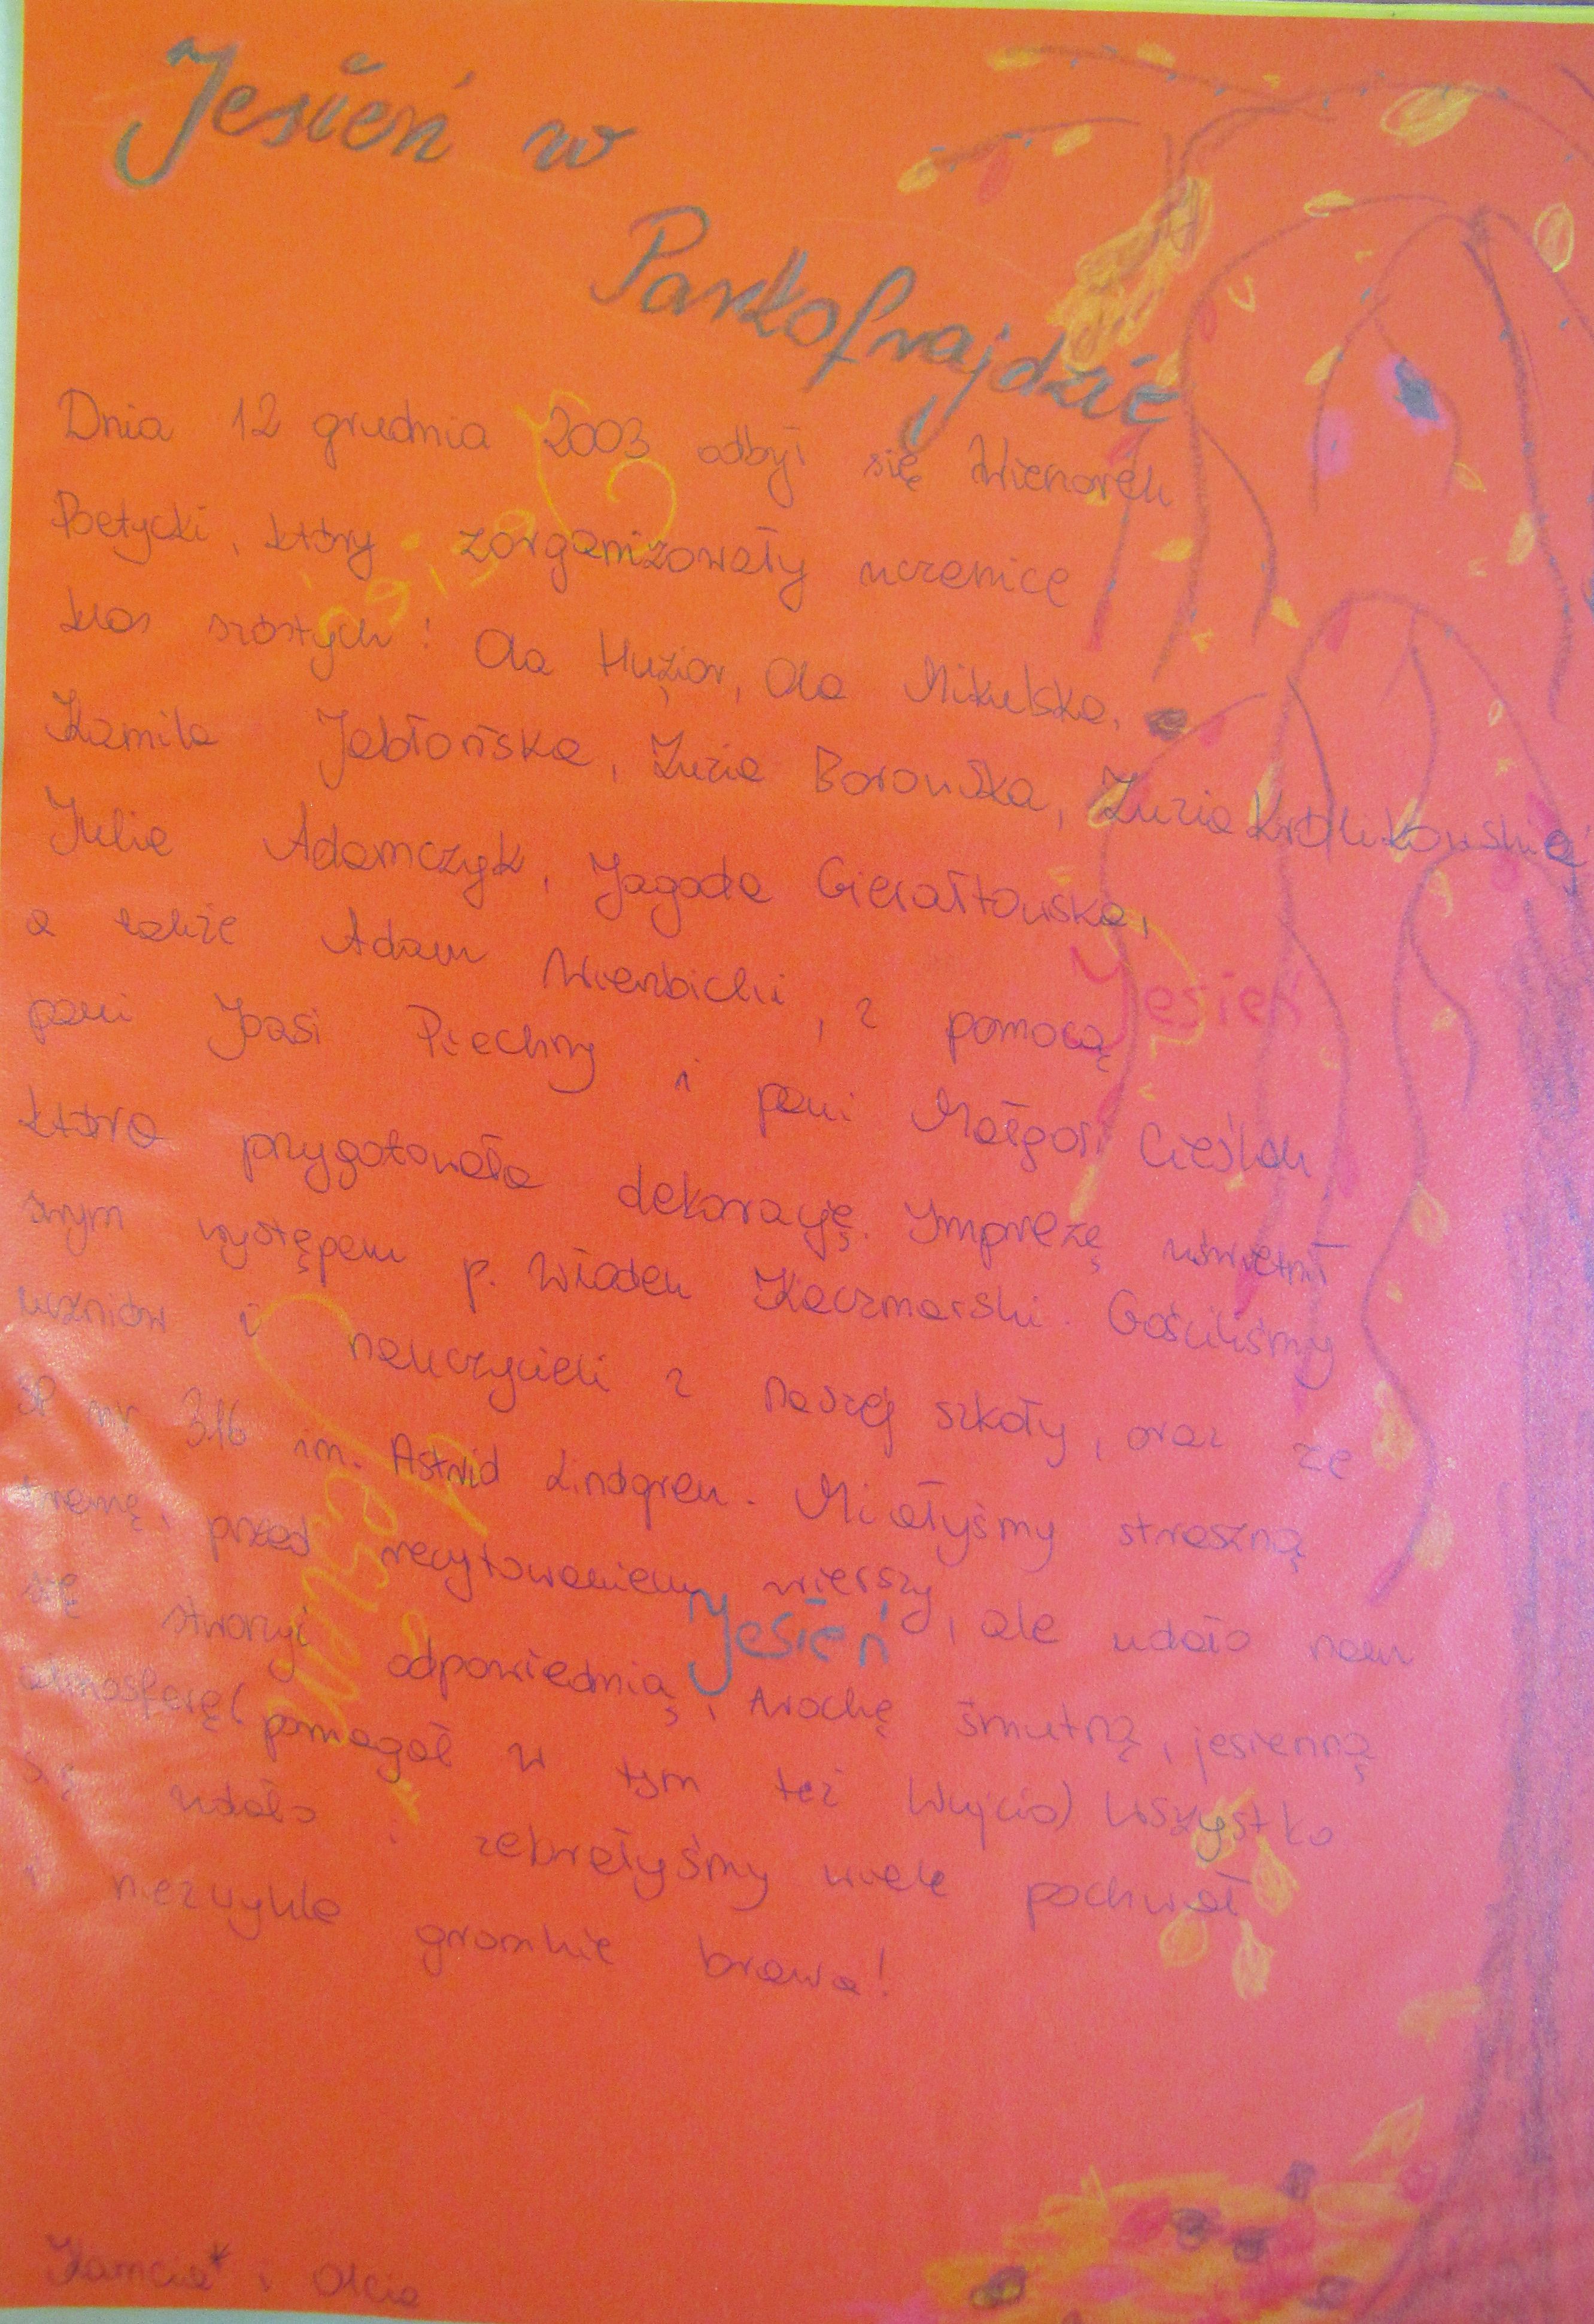 Jesień w
Parkofrajdzie
Dnia 12 grudnia 2003 odbył się Wieczorek
Poetycki, który zorganizowały uczenice
klas szóstych: Ola Huzior, Ola Mikulska,
Kamila Jabłońska, Zuzia Borowska, Zuzia Królikowska,
Julia Adamczyk, Jagoda Gierałtowska,
a także Adam Wierzbicki, z pomocą
pani Joasi Piechny i pani Małgosi Cieślak
która przygotowała dekorację. Imprezę uświetnił
swym występem p. Władek Kaczmarski. Gościliśmy
uczniów i nauczycieli z naszej szkoły, oraz ze
SP nr 316 im. Astrid Lindgren. Miałyśmy straszną
tremę, przed recytowaniem wierszy, ale udało nam
się stworzyć odpowiednią, troche smutną, jesienną
atmosferę (pomagał w tym też Wujcio) Wszystko
się udało i zebrałyśmy wiele pochwał
i niezwykle gromkie brawa!
Jesień
Jesień
Jesień
Jesień
Kamcia* i Olcia